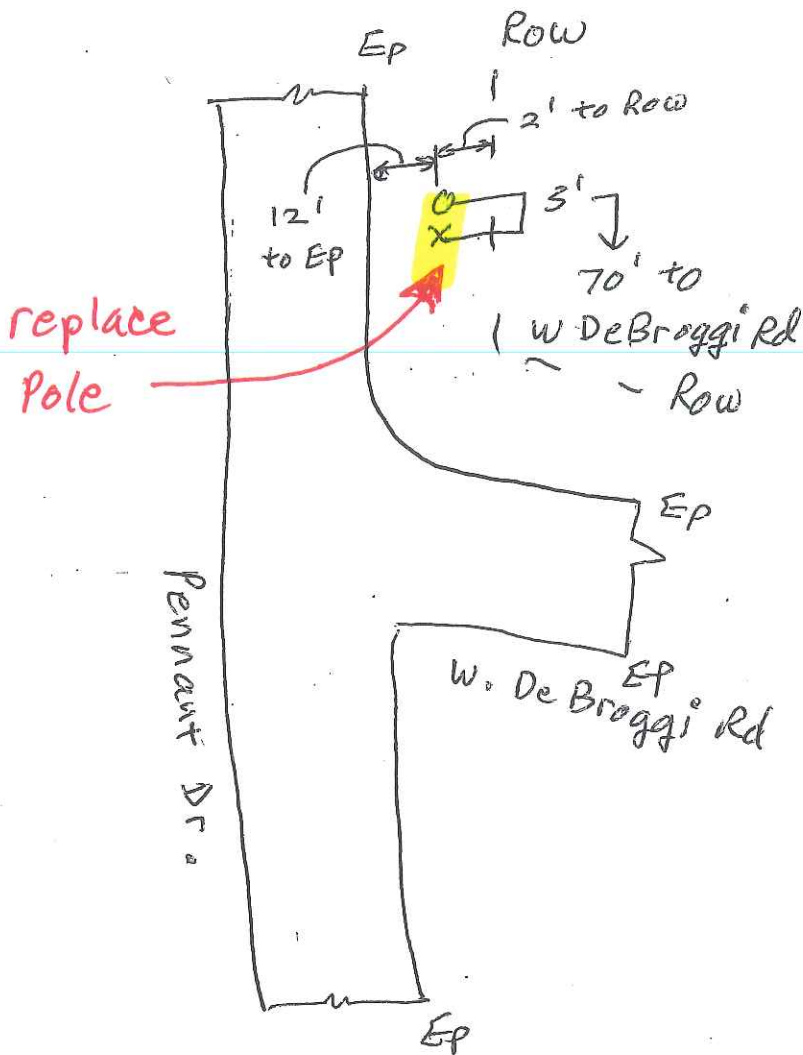 Ep
Row
2' to Row
12'
to Ep
O
X
3'
70' to
W DeBroggi Rd
Row
replace
Pole
Ep
Ep
W. DeBroggi Rd
Pennaut Dr.
Ep